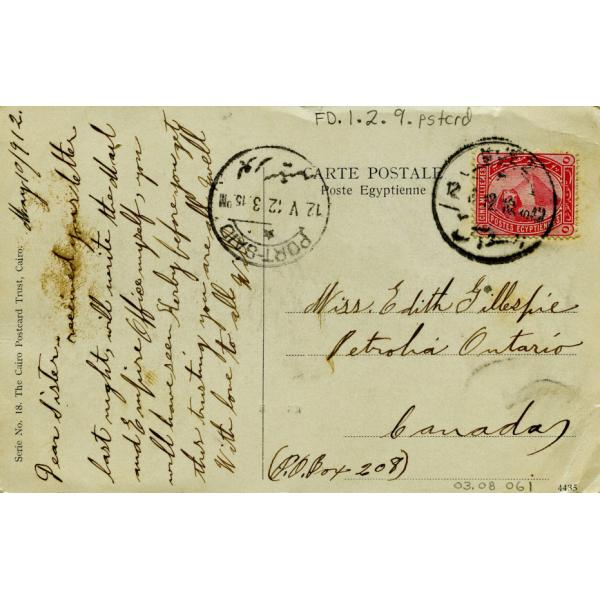 FD.1.2.9.pstcrd
CARTE POSTALE
Poste Egyptienne
Serie No. 18. The Cairo Postcard Trust, Cairo.
May 10/1912.
Dear Sister.
received your letter
last night, will write the Mail
and Empire Office myself, you
will have seen before you get
this trusting you are all well
With love to all
PORT-SAID
12 V 12 3.15 PM
CINQ MILLIEMES
POSTES EGYPTIENNES
Miss. Edith Gillespie
Petrolia Ontario
Canada
(P.O. Box 208)
03.08 061
4435